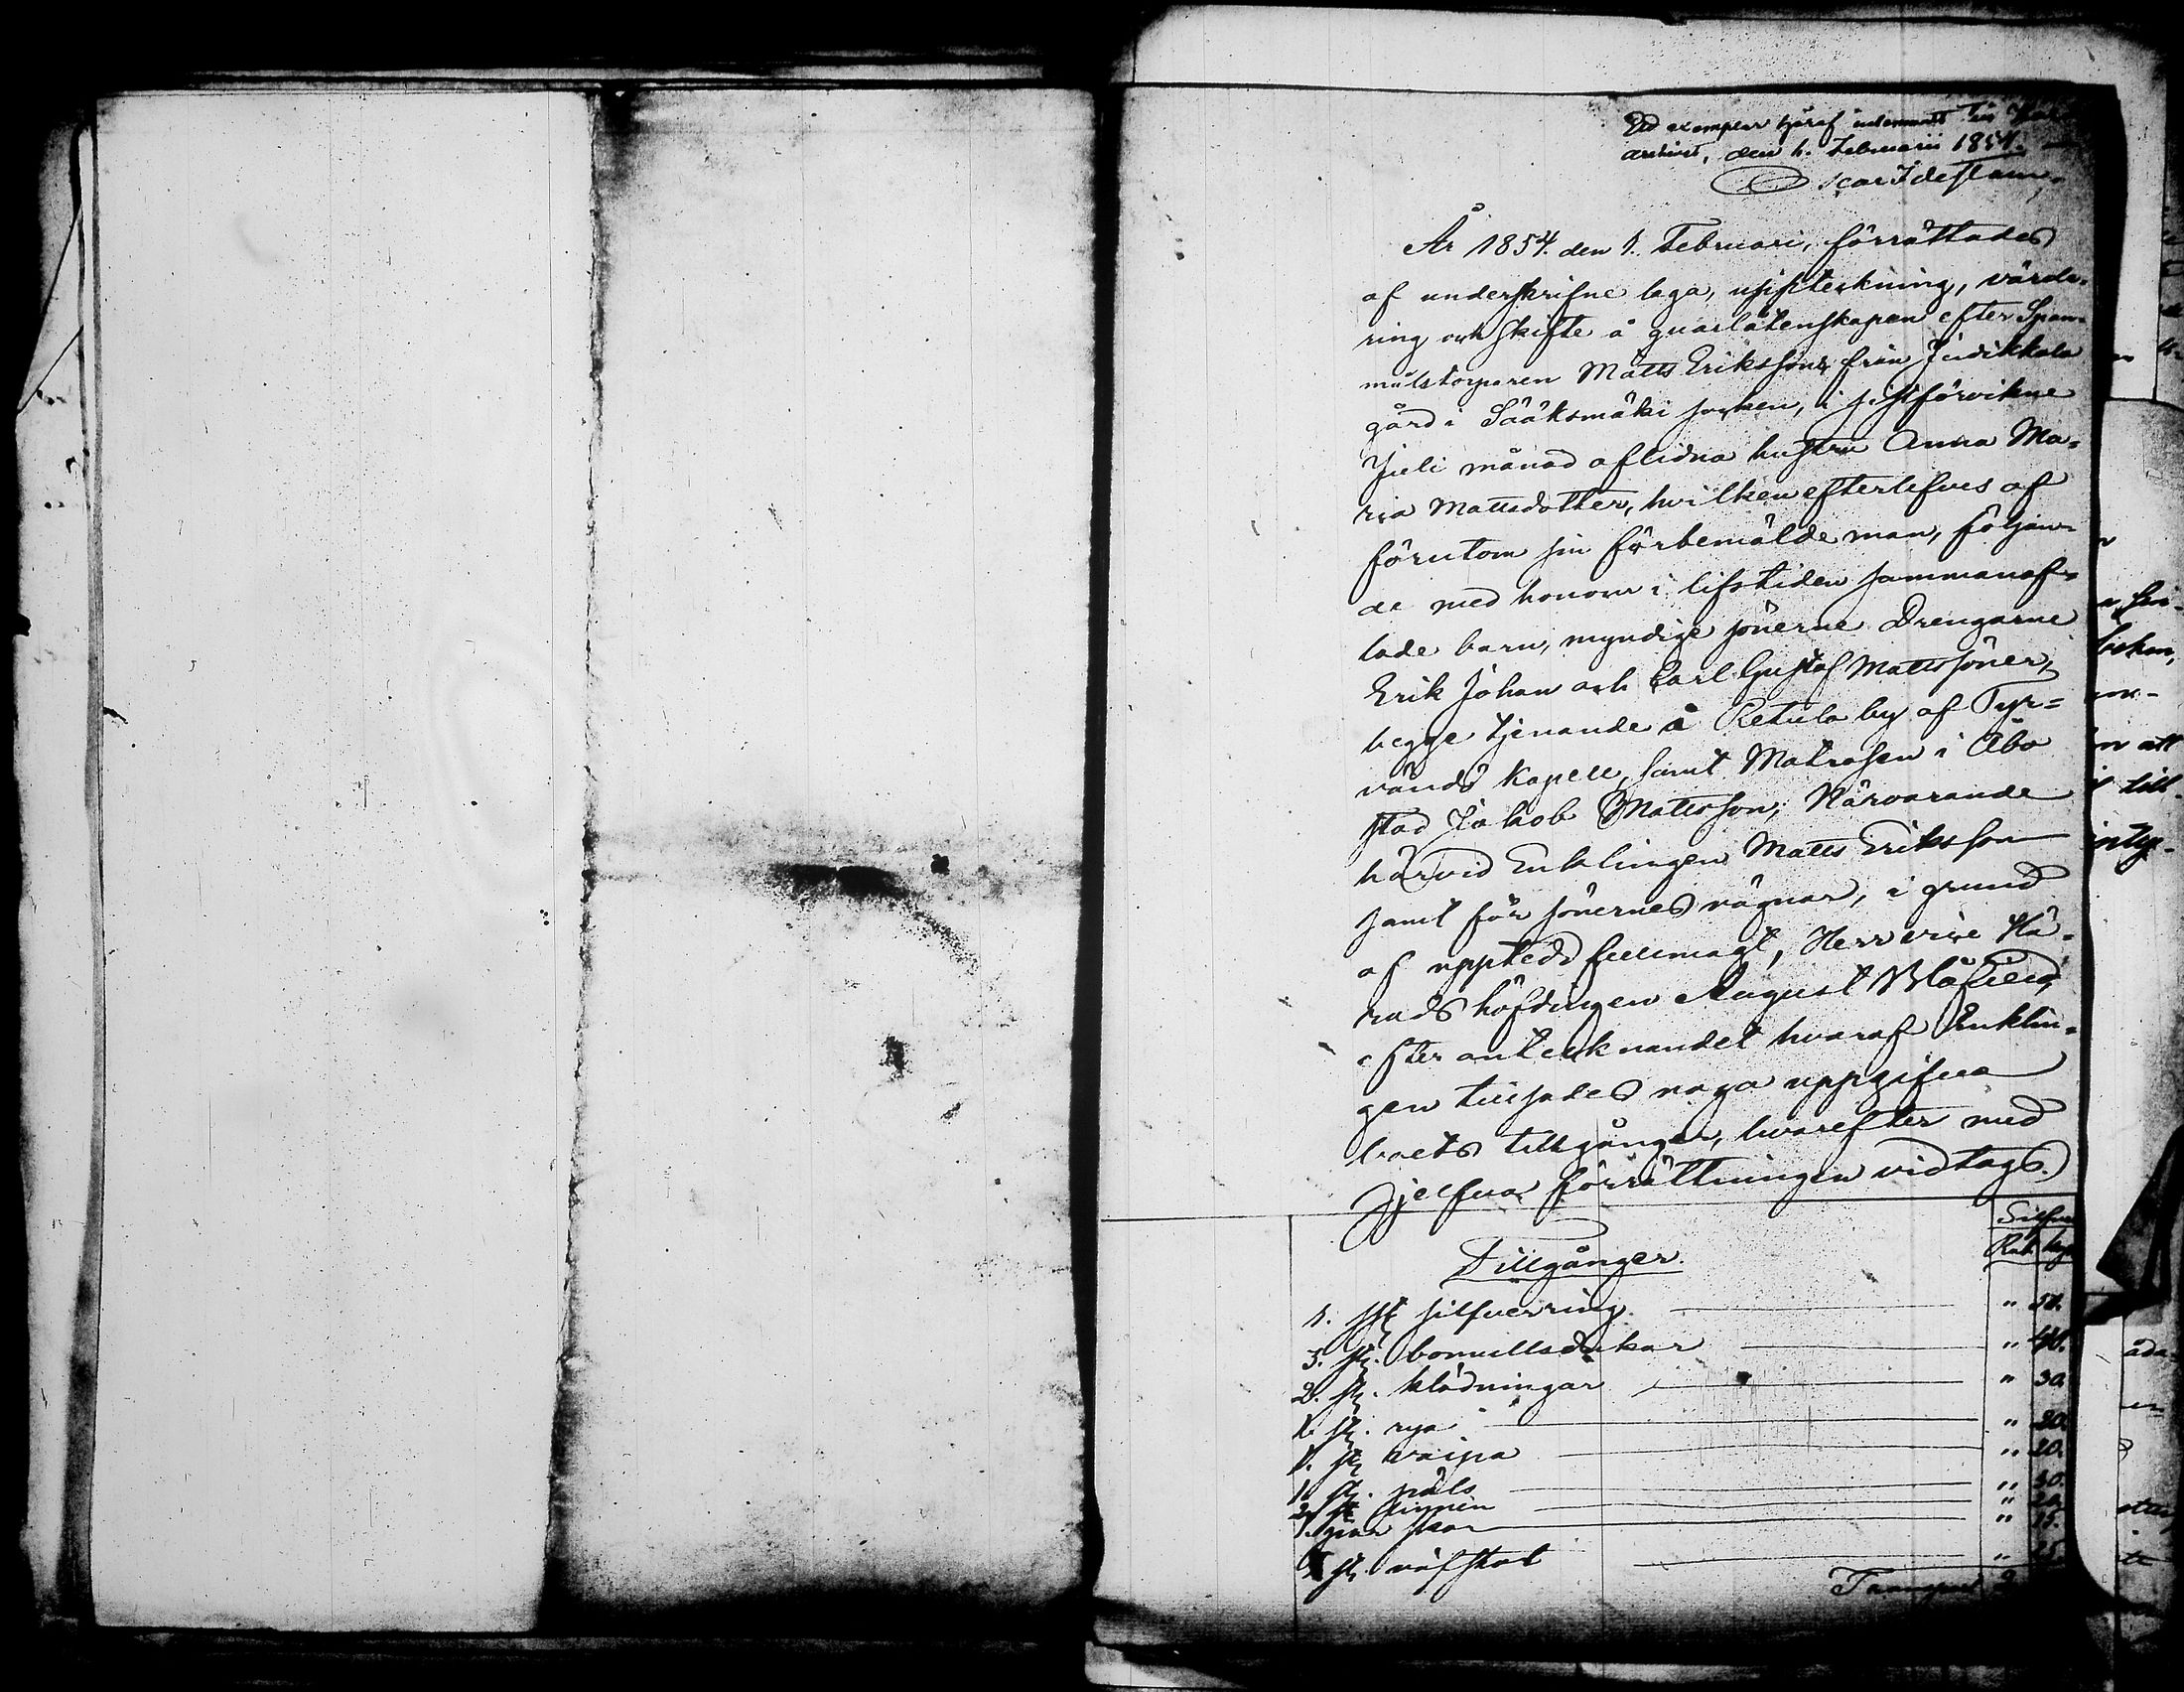 Ett exemplar häraf inlemnadt till
archivet, den 4. Februarii 1854.
Oscar Idestam.
År 1854. den 1. Februari, förrättades
af underskrifne laga, uppteckning, värde-
ring och skifte å qvarlåtenskapen efter Span-
målstorparen Matts Erikssons från Jutikkala
gård i Sääksmäki socken, i sistförvikne
Juli månad aflidna hustru Anna Ma=
ria Mattsdotter, hvilken efterlefves af
förutom sin förbemälde man, följan-
de med honom i lifstiden sammanaf-
lade barn, myndige sönerne Drengarne
Erik Johan och Carl Gustaf Mattssöner,
begge tjenande å Retula by af Tyr=
vänds Kapell, samt Matrosen i Åbo
stad Jakob Mattsson; Närvarande
härvid Enklingen Matts Eriksson
samt för sönernes vägnar, i grund
af uppted fullmagt, Herr vice Hä-
radshöfdingen August Blåfield,
efter antecknandet hvaraf Enklin-
gen tillsades noga uppgifva
boets tillgångar, hvarefter med
sjelfva förrättningen vidtogs.
Silfver
Rub. kop
Tillgångar.
1. st. silfverring " 50.
3. st. bomullsdukar " 40.
2. st. klädningar " 30
1. st. rya " 20.
1. st. vaipa " 20.
1. st. päls " 30.
2. st. linnen " 20.
1. par skor " 15.
st. väfstol " 25.
Transport 2